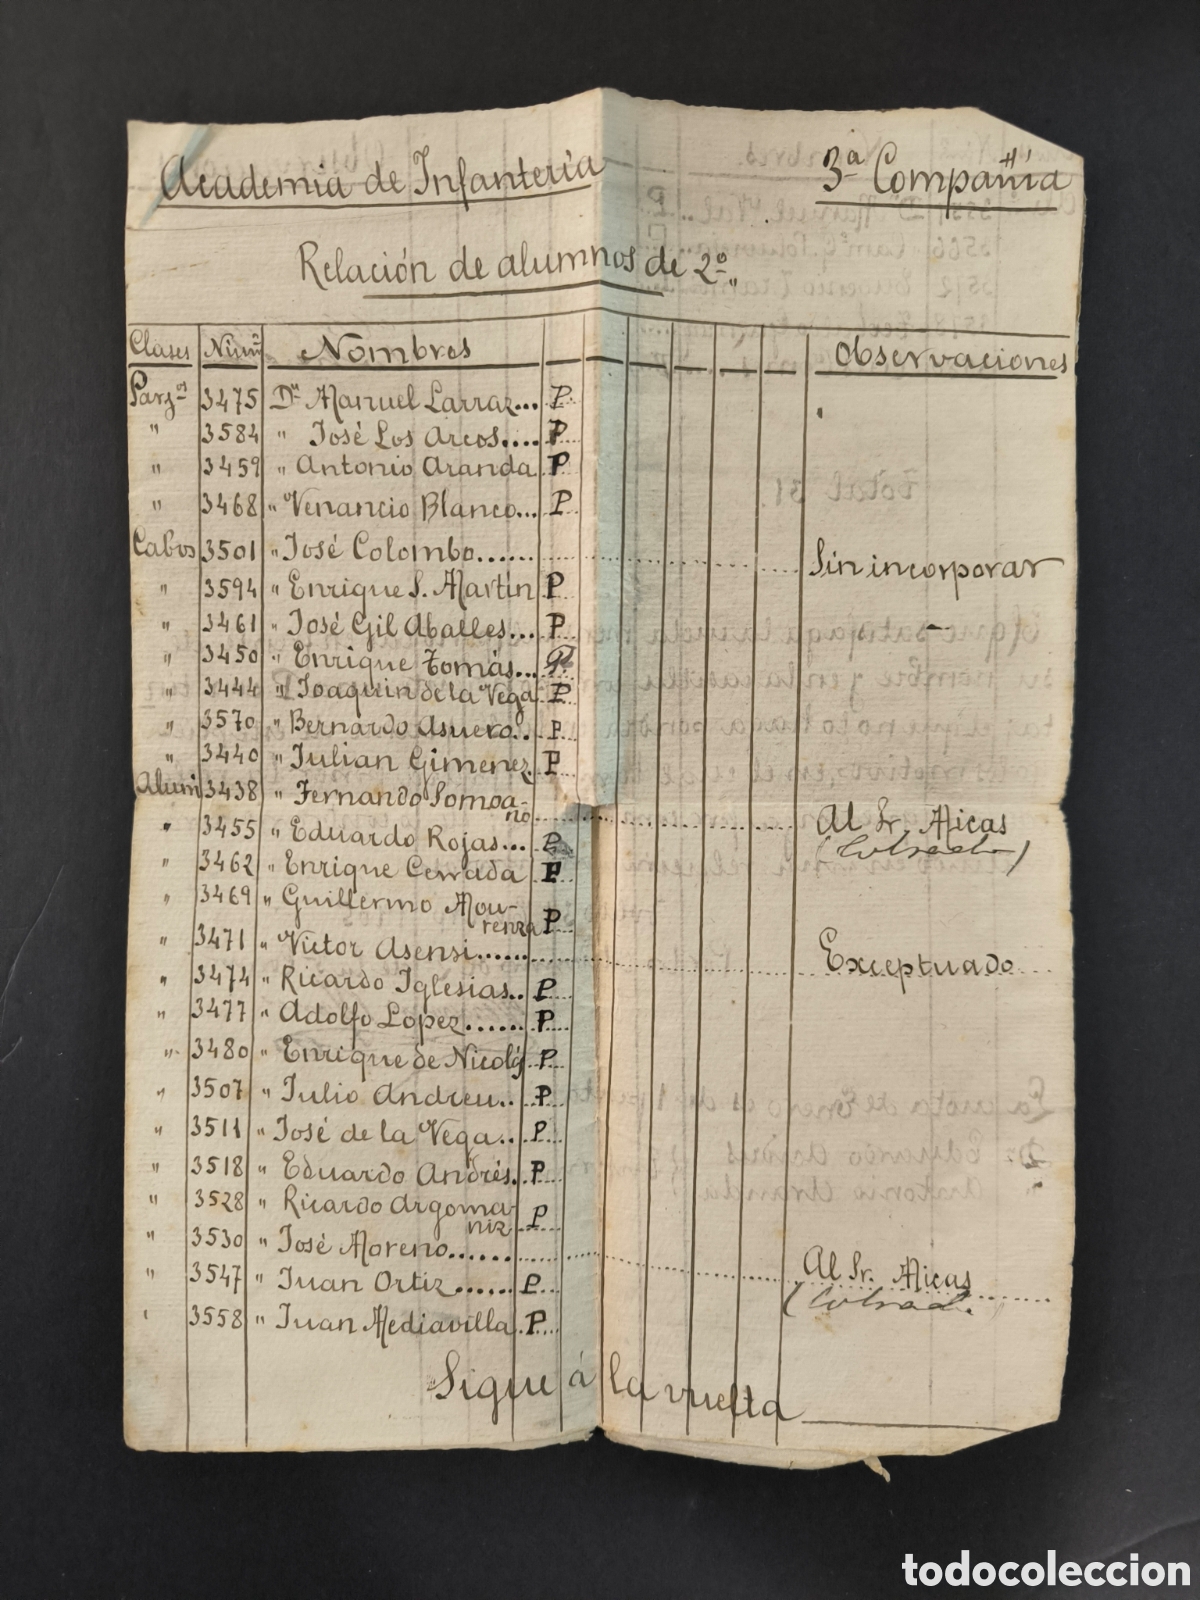 Academia de Infantería 3ª Compañía
Relación de alumnos de 2º
Clases Núm Nombres Observaciones
3475 Dn Manuel Larraz... P
" 3584 " José Los Arcos.... P
" 3459 " Antonio Aranda P
" 3468 " Venancio Blanco... P
Cabos 3501 " José Colombo...... Sin incorporar
" 3594 " Enrique S. Martín P
" 3461 " José Gil Aballes... P
" 3450 " Enrique Tomás... P.
" 3444 " Joaquin de la Vega P
" 3570 " Bernardo Asuero.. P
" 3440 " Julian Gimenez P
Alum 3438 " Fernando Somoa-
no Al Sr. Micas
" 3455 " Eduardo Rojas... P (Cobrado)
" 3462 " Enrique Cerrada P
" 3469 " Guillermo Mou-
renza P
" 3471 " Victor Asensi...... Exceptuado
" 3474 " Ricardo Iglesias.. P
" 3477 " Adolfo Lopez...... P
" 3480 " Enrique de Nicolás P
" 3507 " Julio Andreu.. P
" 3511 " José de la Vega.. P
" 3518 " Eduardo Andrés. P
" 3528 " Ricardo Argoma-
niz P
" 3530 " José Moreno...... Al Sr. Micas
" 3547 " Juan Ortiz...... P (Cobrad.
" 3558 " Juan Mediavilla P
Sigue á la vuelta
todocoleccion